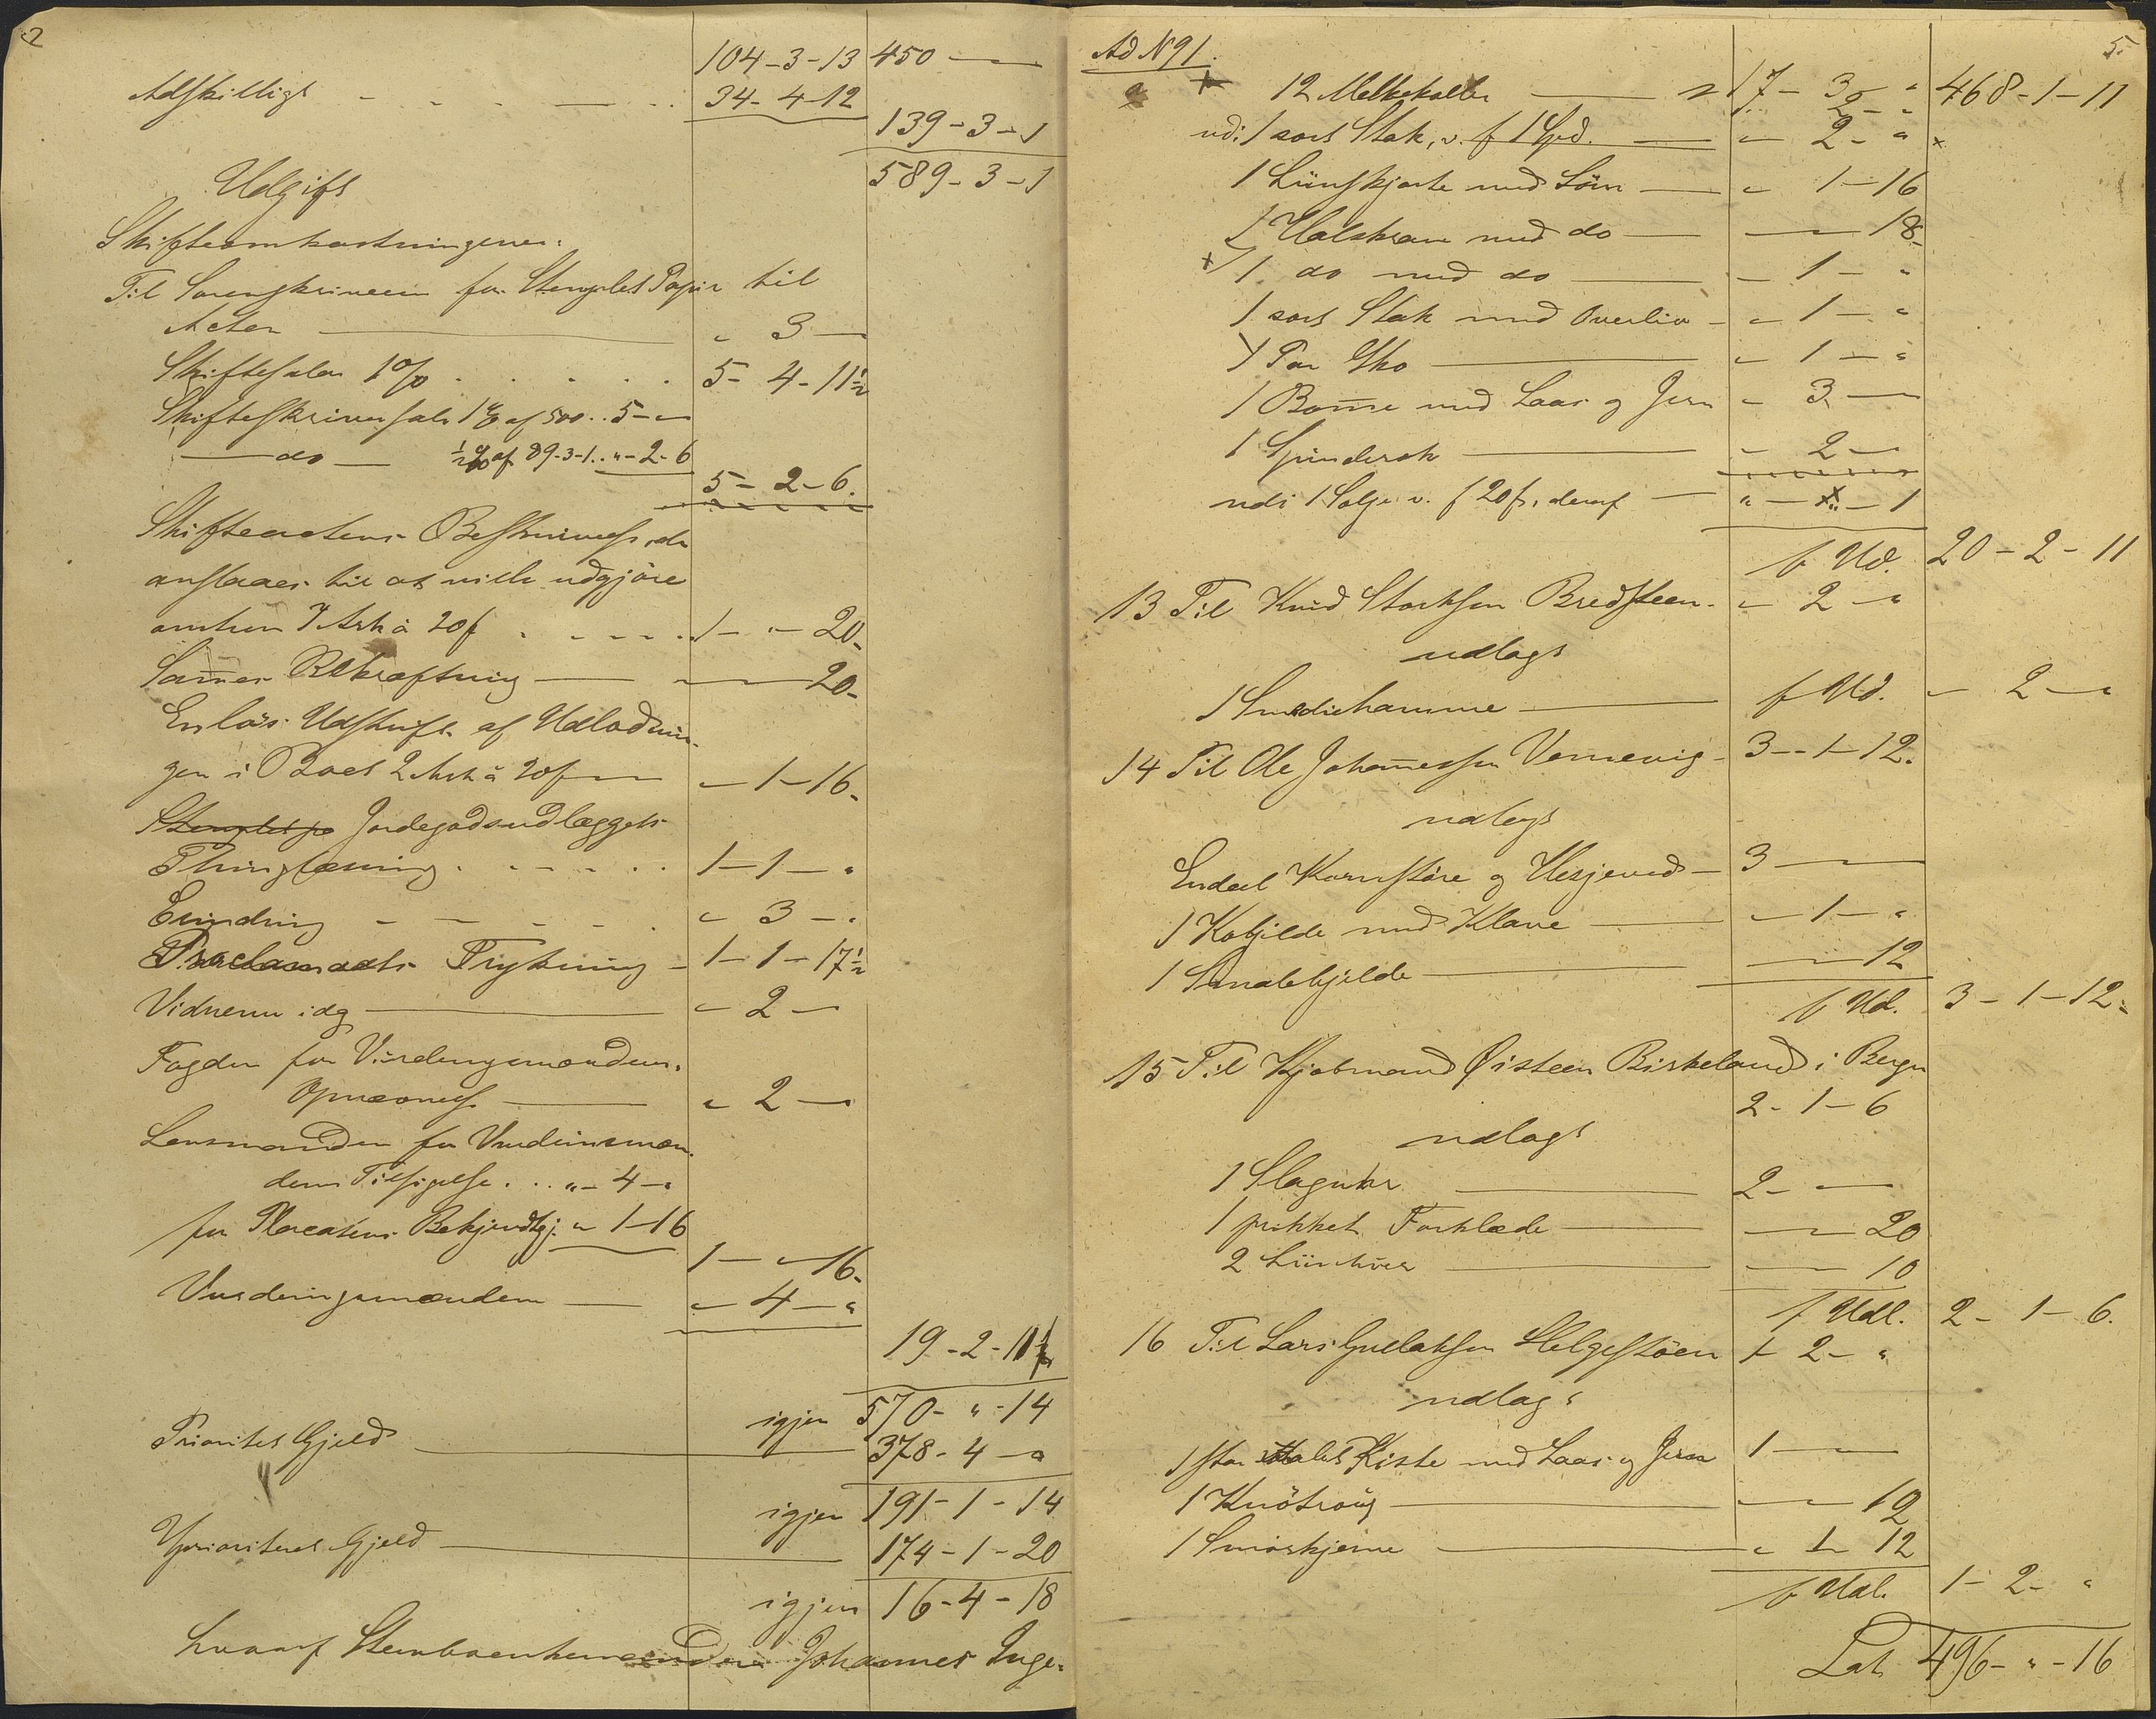 2
104-3-13 450 —
Adskilligt - - - — . . 34-4-12
139-3-1
589-3-1
Udgift
Skifteomkostningerne:
Til Sorenskriveren for Stemplet Papir til
Acten — " 3 —
Skiftesalær 1 % . . . . . 5-4-11½
Skifteskriversalær 1 % af 500 . . 5 - "
— do — ½ % af 89-3-1 . . " - 2-6
5-2-6.
Skifteactens Beskrivelse, der
anslaaes til at ville udgjøre
omtrent 7 Ark à 20 f . - - - . 1 - " - 20-
Sammes Bekræftning — — 20-
En løs Udskrift af Udlodnin-
gen i Boet 2 Ark à 20 f — " - 1-16-
Stemplet pa Jordegodsudlæggets
Thinglæsning . - - - . . 1-1-"
Erindring - - - - . " 3 - "
Proclamaets Trykning - 1-1-17½
Vidnerne idag — " 2 —
Fogden for Vurderingsmændenes
Opnævnelse — " 2 — "
Lensmanden for Vurderingsmæn-
denes Tilsigelse . . . " - 4 - "
for Placatens Bekjendtgj. " 1-16
1 - " 16-
Vurderingsmændene — " 4 - "
19-2-11½
igjen 570 - " - 14
Prioritet Gjeld — 378-4-"
igjen 191-1-14
Uprioriteret Gjeld — 174-1-20
igjen 16-4-18
hvoraf Stervboenkemanden Johannes Inge-
5.
Ad N 91.
12 Melkekoller — 17 - 3 - " 468-1-11
2 - "
udi 1 sort Stak, v. f 1 Spd. — " 2 - "
1 Linskjorte med Sølv — " 1-16
1 Halskrave med do — — 18-
1 do med do — - 1 - "
1 sort Stak med Overliv - " 1 - "
1 Par Sko — " 1 - "
1 Bomme med Laas og Jern - 3 —
1 Spinderok — - 2 —
udi 1 Solje v. f 20 f, deraf — " - " - 1
f Ud. 20-2-11
13 Til Knud Storksen Bredsteen . " 2 - "
udlagt
1 Smediehammer — f Ud. - 2 - "
14 Til Ole Johannessen Vennevig - 3-1-12.
udlagt
Endeel Kornstøre og Hesjeved - 3 —
1 Kobjelde med Klave — " 1 - "
1 Smalebjelde — — 12
f Ud. 3-1-12-
15 Til Kjøbmand Øisteen Birkeland i Bergen
2-1-6
udlagt
1 Slaguhr — 2 - —
1 prikket Forklæde — — 20
2 Liinhuer — — 10
f Udl. 2-1-6.
16 Til Lars Gullaksen Helgestøen 1-2-"
udlagt
1 stor malet Kiste med Laas og Jern 1 —
1 Knøtroug — — 12
1 Smørkjerne — " 1- 12
f Udl. 1-2- "
Lat. 496 - " - 16